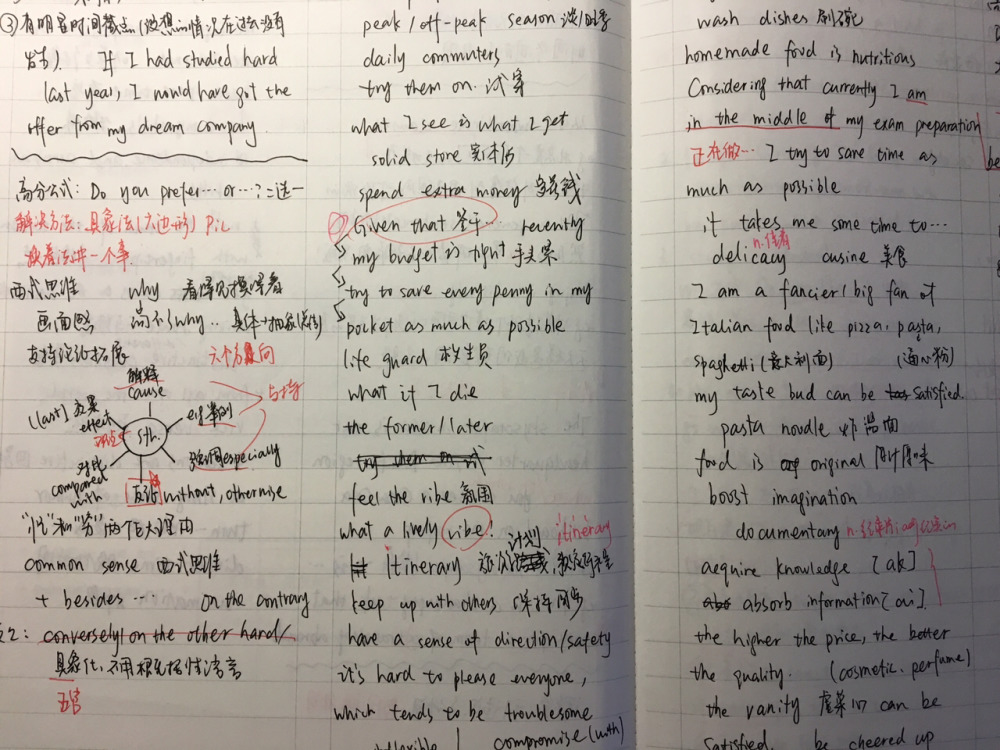 ③有明显时间截点(假想的情况在过去没有
发生). If I had studied hard
last year, I would have got the
offer from my dream company.
高分公式: Do you prefer… or…? 二选一
解决方法: 具象法(六边形) Pic
说着其中一个事
西式思维 why 看得见摸得着
画面感 需不断why.. 具体→抽象
支持论论拓展 六个方向
解释
cause
(last) 效果
effect
Sth.
eg 举例
支持
强调 especially
对比
compared
with
反论 without, otherwise
"忙"和"穷"两个大理由
common sense 西式思维
+ besides … on the contrary
2: conversely/on the other hand/
具象化, 不用概括性语言
五官
peak/off-peak season 淡/旺季
daily commuters
try them on. 试穿
what I see is what I get
solid store 实体店
spend extra money 多花钱
Given that 鉴于 recently
my budget is tight 手头紧
try to save every penny in my
pocket as much as possible
life guard 救生员
what if I die
the former/later
try them on 试
feel the vibe 氛围
what a lively vibe!
计划 itinerary
Itinerary
keep up with others 保持同步
have a sense of direction/safety
it's hard to please everyone,
which tends to be troublesome
compromise (with)
wash dishes 刷碗
homemade food is nutritious
Considering that currently I am
in the middle of my exam preparation
正在做… I try to save time as
much as possible
it takes me some time to…
n.佳肴
delicacy cusine 美食
I am a fancier/big fan of
Italian food like pizza, pasta,
spaghetti (意大利面) (通心粉)
my taste bud can be satisfied.
pasta noodle 炒湿面
food is original 原汁原味
boost imagination
documentary n.纪录片 adj.纪实的
aequire knowledge [ak]
absorb information [ai].
the higher the price, the better
the quality. (cosmetic, perfume)
the vanity 虚荣心 can be
satisfied. be cheered up